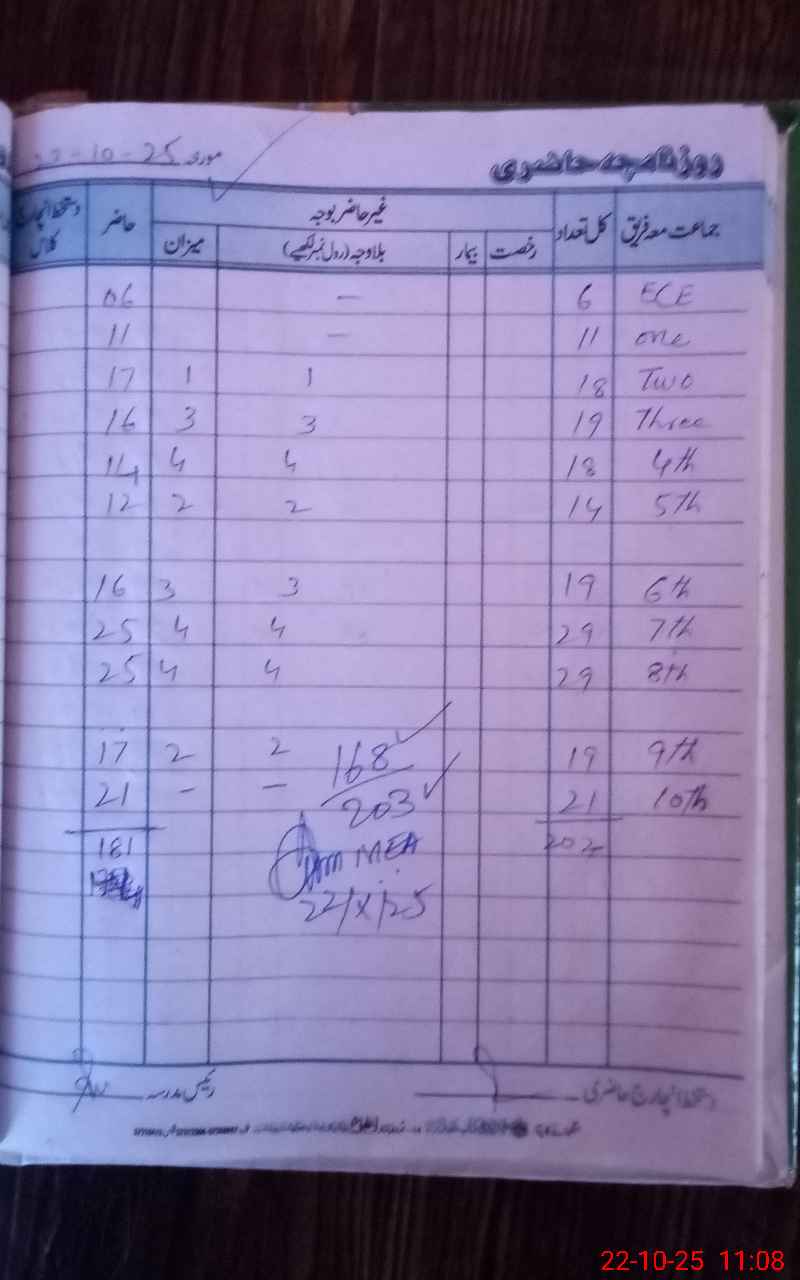 روزنامچہ حاضری مورخہ 22-10-25
جماعت معہ فریق کل تعداد غیر حاضر بوجہ حاضر دستخط انچارج کلاس
رخصت بیمار بلاوجہ (رول نمبر لکھیے) میزان
ECE 6 — 06
one 11 — 11
Two 18 1 1 17
Three 19 3 3 16
4th 18 4 4 14
5th 14 2 2 12
6th 19 3 3 16
7th 29 4 4 25
8th 29 4 4 25
9th 19 2 2 17
168
10th 21 — - 21
203
202 181
MEA
22/X/25
دستخط انچارج حاضری رئیس مدرسہ
22-10-25 11:08